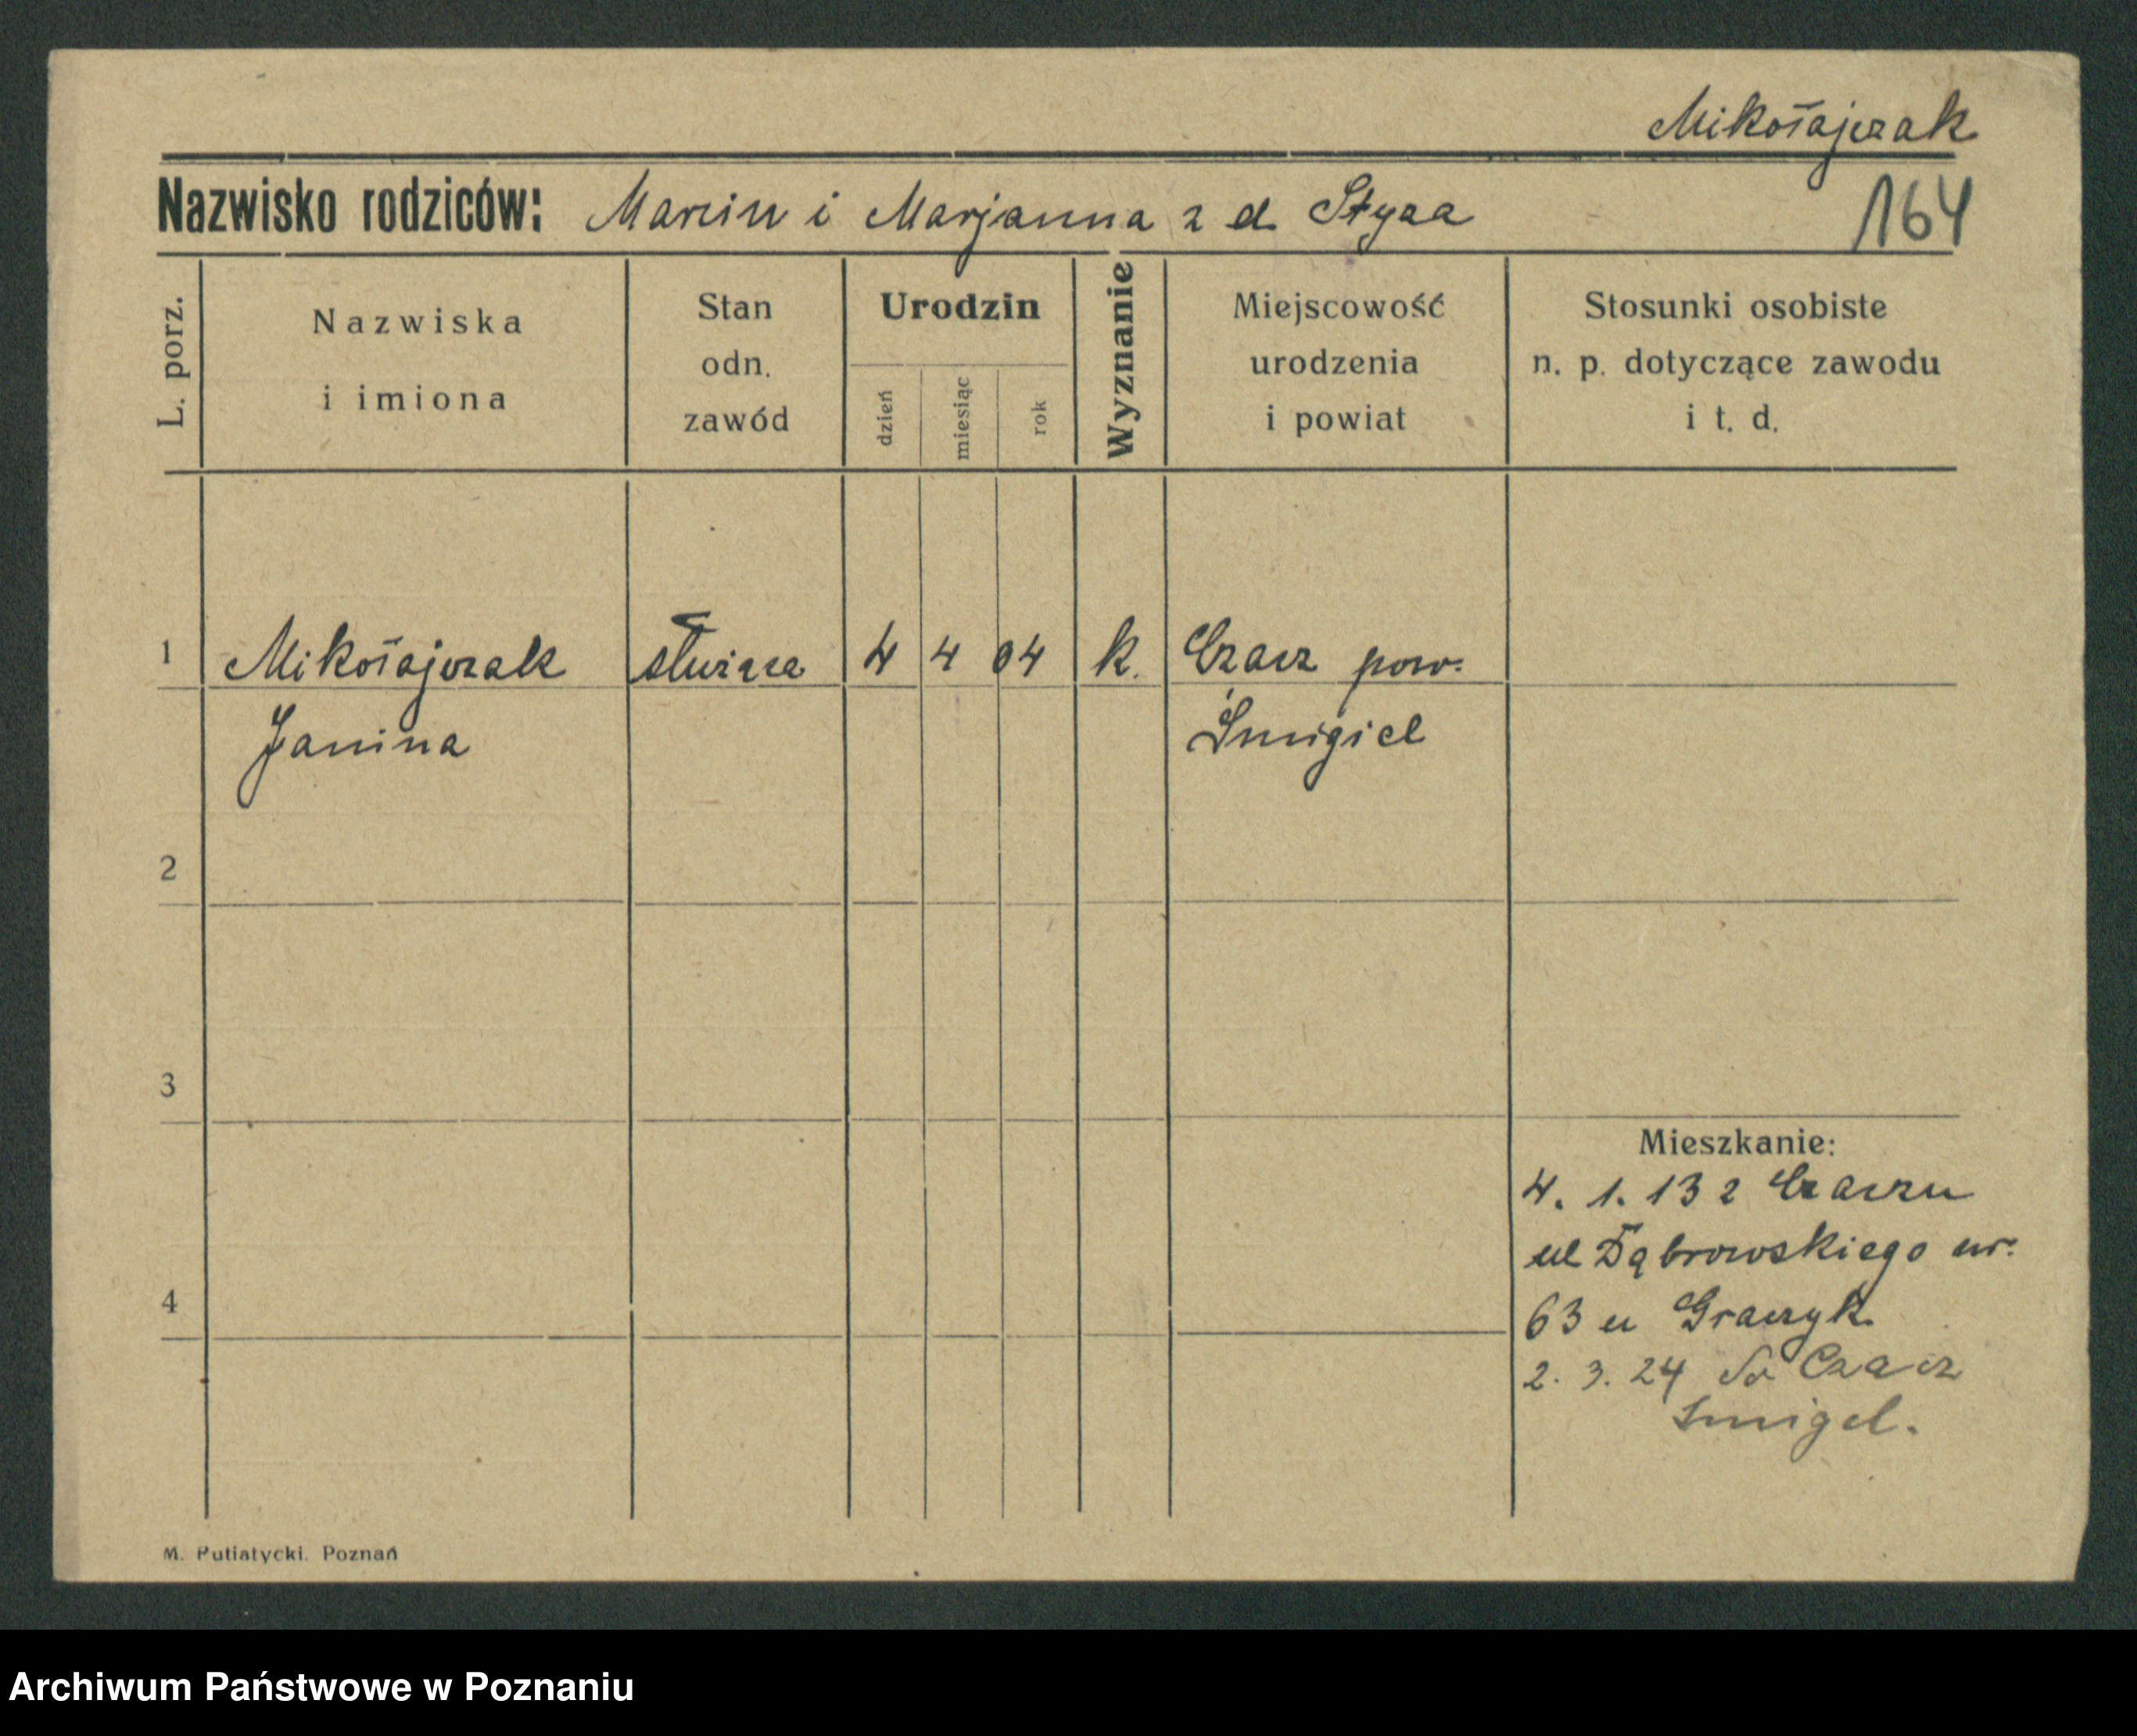 Mikołajczak
Nazwisko rodziców: Marcin i Marjanna z d. Styza
164
L. porz.
Nazwiska
i imiona
Stan
odn.
zawód
Urodzin
dzień
miesiąc
rok
Wyznanie
Miejscowość
urodzenia
i powiat
Stosunki osobiste
n. p. dotyczące zawodu
i t. d.
1 Mikołajczak służąca 4 4 04 k. Czacz pow.
Janina Śmigiel
2
3
Mieszkanie:
4. 1. 13 z Czaczu
ul Dąbrowskiego nr.
4
63 u Graczyk.
2. 3. 24 Czacz
Smigel.
M. Putiatycki. Poznań
Archiwum Państwowe w Poznaniu